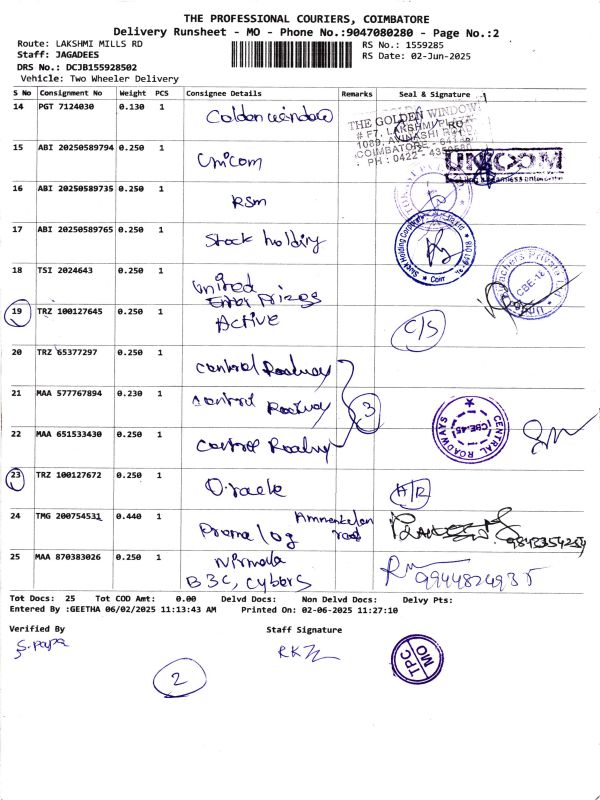 THE PROFESSIONAL COURIERS, COIMBATORE
Delivery Runsheet - MO - Phone No.:9047080280 - Page No.:2
Route: LAKSHMI MILLS RD
RS No.: 1559285
Staff: JAGADEES
RS Date: 02-Jun-2025
DRS No.: DCJB155928502
Vehicle: Two Wheeler Delivery
S No Consignment No Weight PCS Consignee Details Remarks Seal & Signature
14 PGT 7124030 0.130 1 Golden window
THE GOLDEN WINDOW
# F7, LAKSHMI
1089, AVINASHI RD.
COIMBATORE - 641
PH : 0422 -
15 ABI 20250589794 0.250 1 Unicom UNICOM
16 ABI 20250589735 0.250 1 RSM
17 ABI 20250589765 0.250 1 Stock holding
Stock Holding
18 TSI 2024643 0.250 1 United
Enter Prizes
Private
CBE-18
19 TRZ 100127645 0.250 1 Active C/S
20 TRZ 65377297 0.250 1 Control Roadway
21 MAA 577767894 0.230 1 Control Roadway 3
22 MAA 651533430 0.250 1 Control Roadway
CENTRAL ROADWAYS
CBE-45
23 TRZ 100127672 0.250 1 Oracle A/R
24 TMG 200754531 0.440 1 Promo log
25 MAA 870383026 0.250 1 Nirmala
B3C, Cybers 9944824935
Tot Docs: 25 Tot COD Amt: 0.00 Delvd Docs: Non Delvd Docs: Delvy Pts:
Entered By :GEETHA 06/02/2025 11:13:43 AM Printed On: 02-06-2025 11:27:10
Verified By Staff Signature
S. Papa
TPC
MO
2